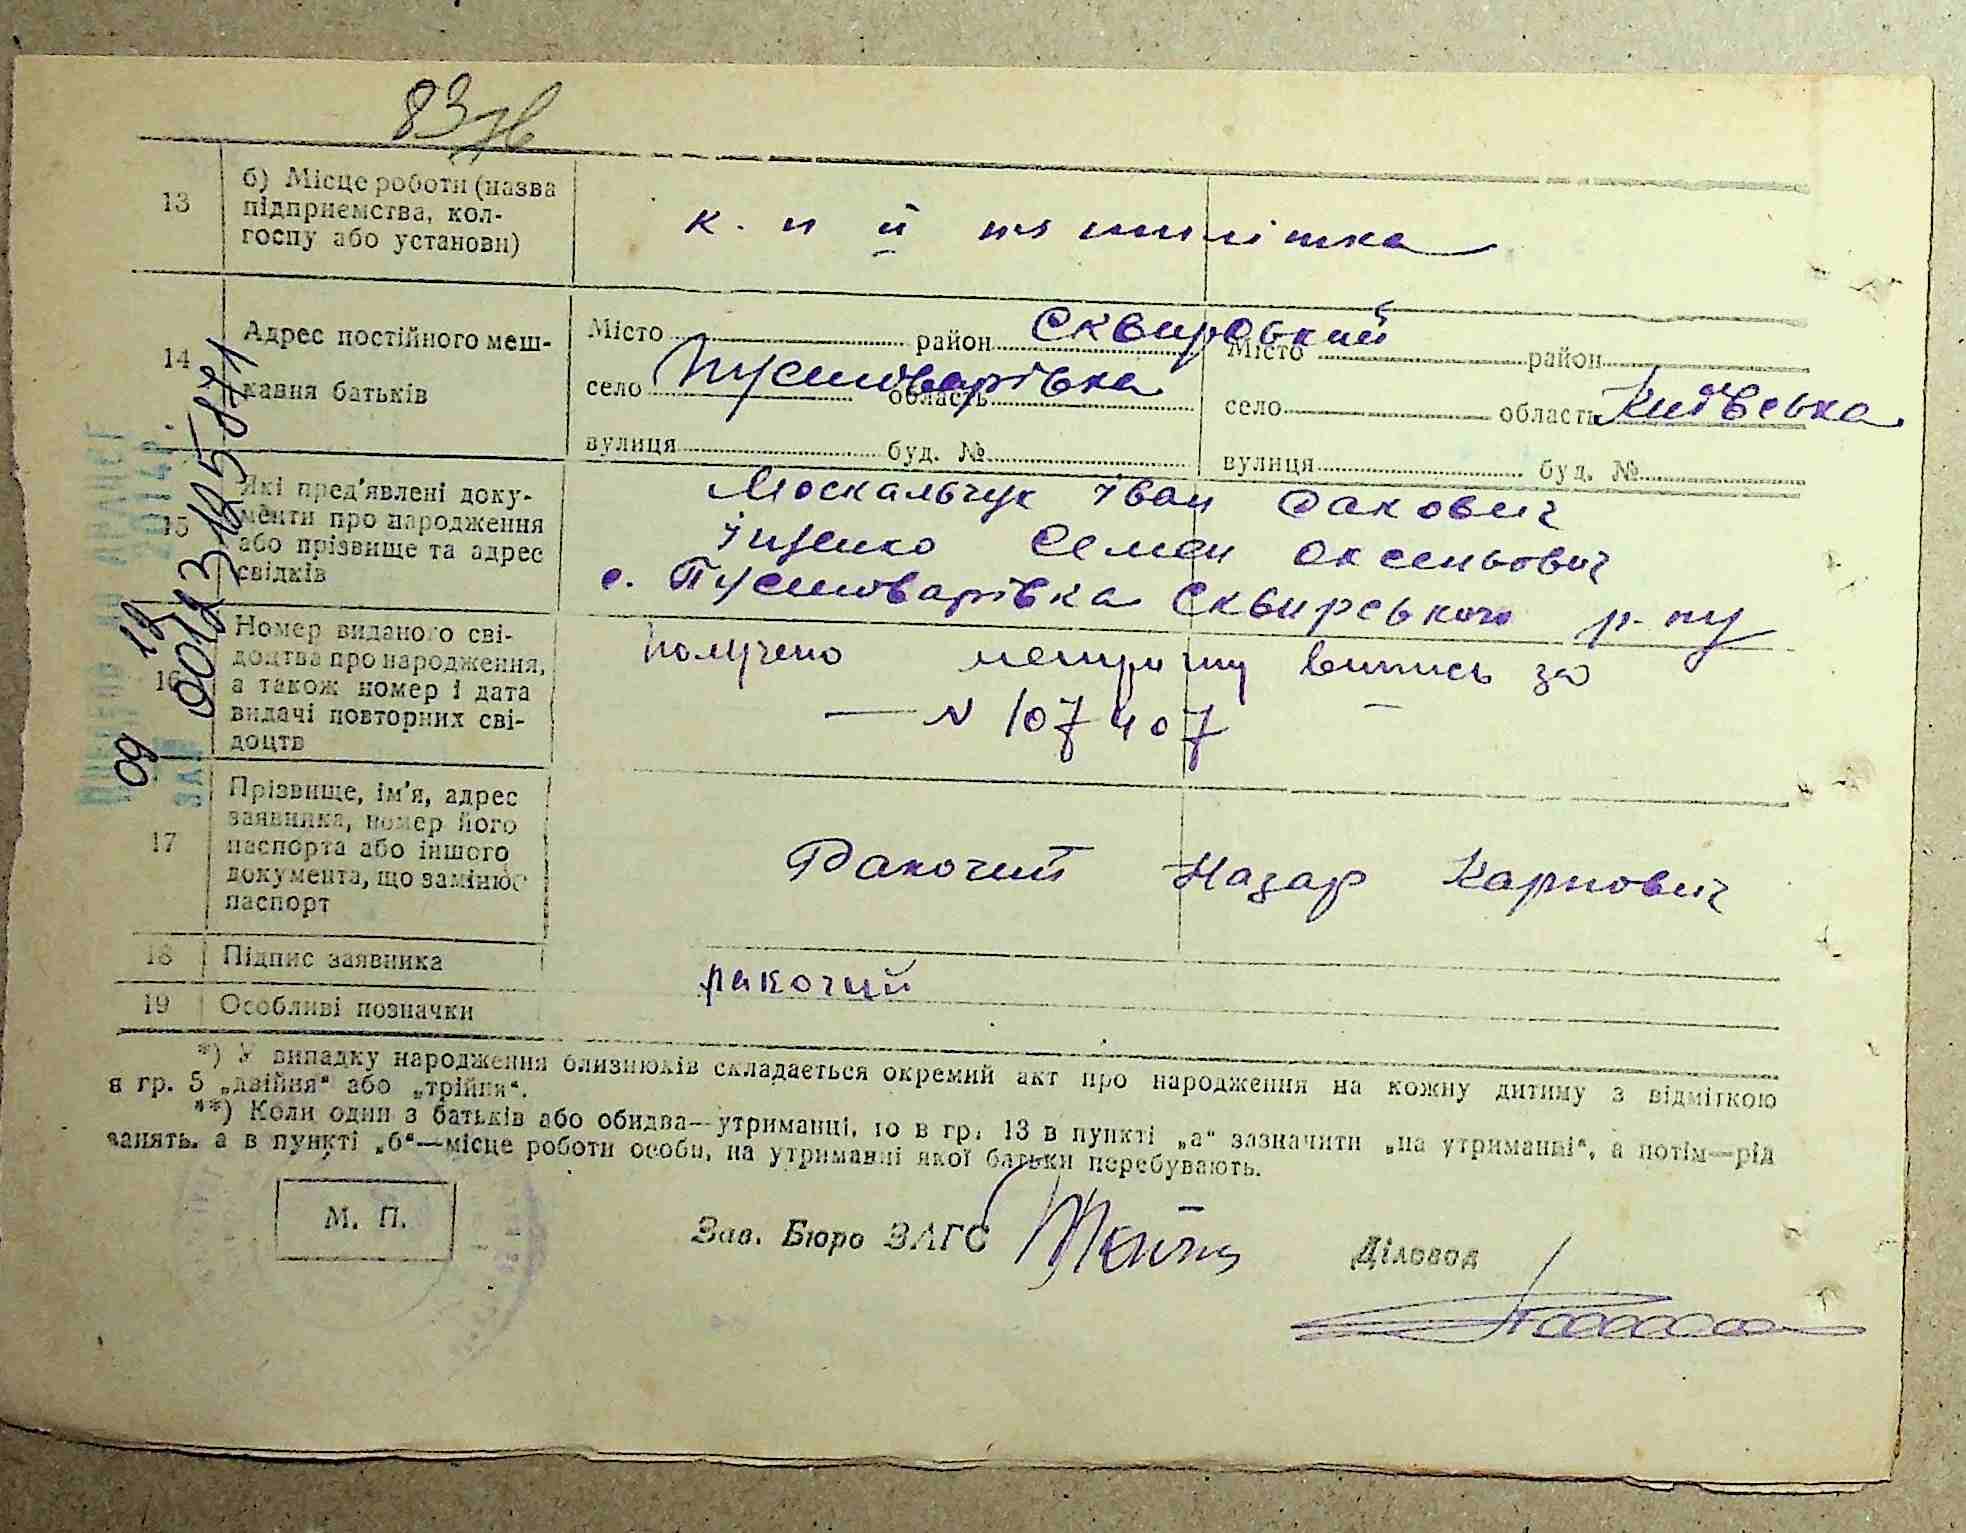 83
13
б) Місце роботи (назва
підприємства, кол-
госпу або установи)
к. п й п'ятилітка
14
Адрес постійного меш-
кання батьків
Місто район Сквирський
село Пустоварівка область
вулиця буд. №
Місто район
село область Київська
вулиця буд. №
15
Які пред'явлені доку-
менти про народження
або прізвище та адрес
свідків
Москальчук Іван
Іщенко Семен Оксеньович
с. Пустоварівка Сквирського р-ну
16
Номер виданого сві-
доцтва про народження,
а також номер і дата
видачі повторних сві-
доцтв
получено метричну випись за
— N 107407
17
Прізвище, ім'я, адрес
заявника, номер його
паспорта або іншого
документа, що замінює
паспорт
Ракочий Назар Карпович
18
Підпис заявника
ракочий
19
Особливі позначки
*) У випадку народження близнюків складається окремий акт про народження на кожну дитину з відміткою
в гр. 5 „двійня“ або „трійня“.
**) Коли один з батьків або обидва—утриманці, то в гр. 13 в пункті „а“ зазначити „на утриманні“, а потім—рід
занять, а в пункті „б“—місце роботи особи, на утриманні якої батьки перебувають.
М. П.
Зав. Бюро ЗАГС
Діловод